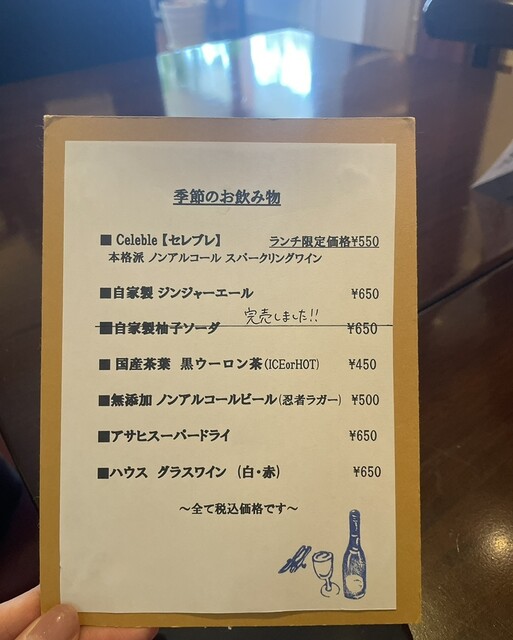 季節のお飲み物
■ Celeble【セレブレ】 ランチ限定価格¥550
本格派 ノンアルコール スパークリングワイン
■自家製 ジンジャーエール ¥650
完売しました!!
■自家製柚子ソーダ ¥650
■ 国産茶葉 黒ウーロン茶(ICEorHOT) ¥450
■無添加 ノンアルコールビール(忍者ラガー) ¥500
■アサヒスーパードライ ¥650
■ハウス グラスワイン (白・赤) ¥650
~全て税込価格です~